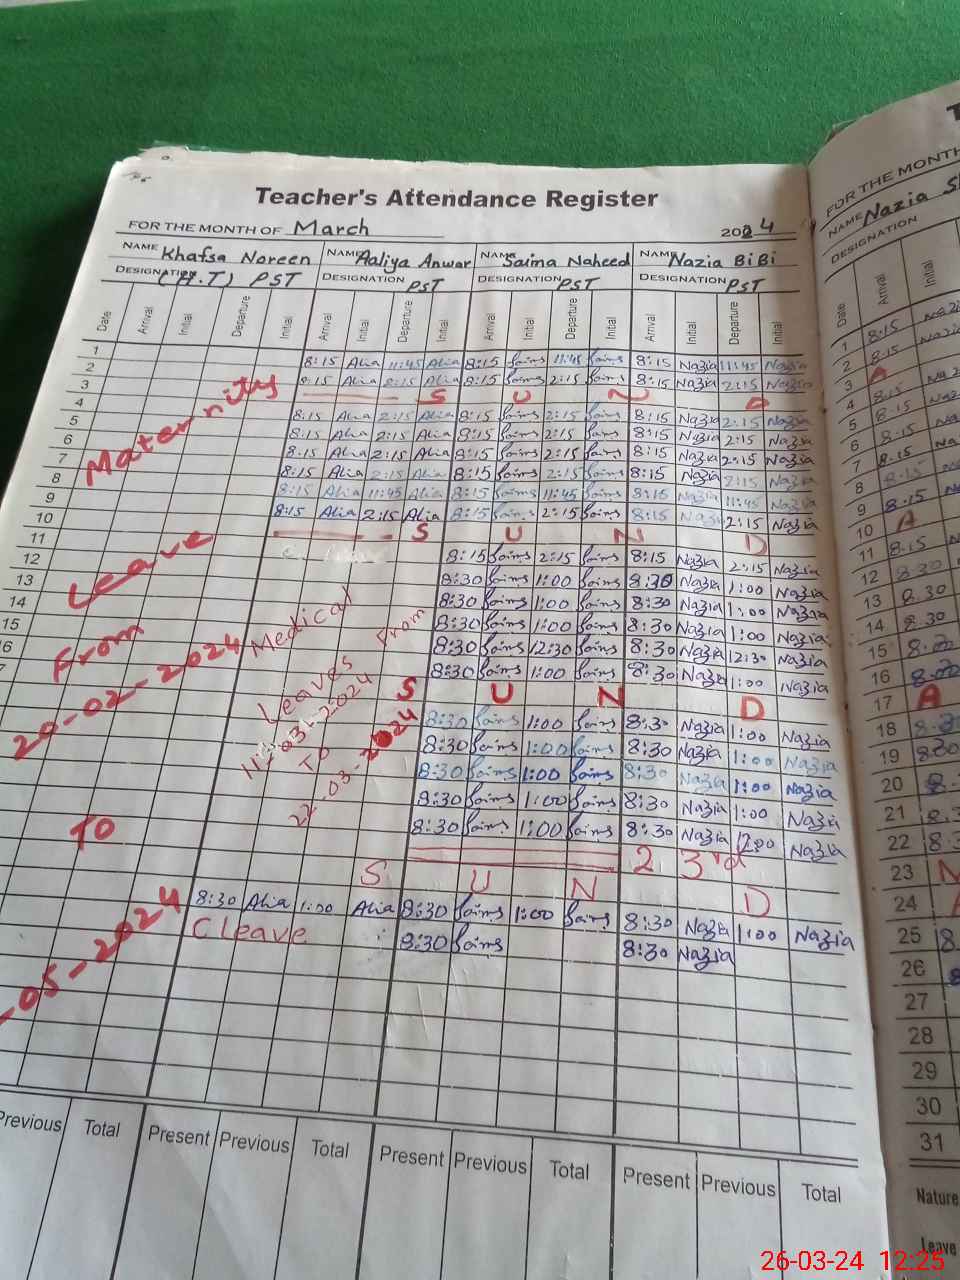 Teacher's Attendance Register
FOR THE MONTH OF March 2024
NAME Khafsa Noreen NAME Aaliya Anwar NAME Saima Naheed NAME Nazia BiBi
DESIGNATION (H.T) PST DESIGNATION PST DESIGNATION PST PST
Date Arrival Initial Departure Initial Arrival Initial Departure Initial Arrival Initial Departure Initial Arrival Initial Departure Initial
1 8:15 Alia 11:45 Alia 8:15 Saima 11:45 Saima 8:15 Nazia 11:45 Nazia
2 8:15 Alia 2:15 Alia 8:15 Saima 2:15 Saima 8:15 Nazia 2:15 Nazia
3 S U N D
4 8:15 Alia 2:15 Alia 8:15 Saima 2:15 Saima 8:15 Nazia 2:15 Nazia
5 8:15 Alia 2:15 Alia 8:15 Saima 2:15 Saima 8:15 Nazia 2:15 Nazia
6 8:15 Alia 2:15 Alia 8:15 Saima 2:15 Saima 8:15 Nazia 2:15 Nazia
7 8:15 Alia 2:15 Alia 8:15 Saima 2:15 Saima 8:15 Nazia 2:15 Nazia
8 8:15 Alia 11:45 Alia 8:15 Saima 11:45 Saima 8:15 Nazia 11:45 Nazia
9 8:15 Alia 2:15 Alia 8:15 Saima 2:15 Saima 8:15 Nazia 2:15 Nazia
10 S U N D
11 8:15 Saima 2:15 Saima 8:15 Nazia 2:15 Nazia
12 8:30 Saima 1:00 Saima 8:30 Nazia 1:00 Nazia
13 8:30 Saima 1:00 Saima 8:30 Nazia 1:00 Nazia
14 8:30 Saima 1:00 Saima 8:30 Nazia 1:00 Nazia
15 8:30 Saima 12:30 Saima 8:30 Nazia 12:30 Nazia
16 8:30 Saima 1:00 Saima 8:30 Nazia 1:00 Nazia
7 S U N D
8:30 Saima 1:00 Saima 8:30 Nazia 1:00 Nazia
8:30 Saima 1:00 Saima 8:30 Nazia 1:00 Nazia
8:30 Saima 1:00 Saima 8:30 Nazia 1:00 Nazia
8:30 Saima 1:00 Saima 8:30 Nazia 1:00 Nazia
8:30 Saima 1:00 Saima 8:30 Nazia 12:00 Nazia
2 3rd
S U N D
8:30 Alia 1:00 Alia 8:30 Saima 1:00 Saima 8:30 Nazia 1:00 Nazia
C leave 8:30 Saima 8:30 Nazia
Maternity
Leave
From
20-02-2024
TO
-05-2024
Medical
Leaves From
11-03-2024
TO
22-03-2024
Previous Total Present Previous Total Present Previous Total Present Previous Total
T
FOR THE MONTH
NAME Nazia
DESIGNATION
Date Arrival Initial
1 8:15
2 8:15
3 A
4 8:15
5 8:15
6 8:15
7 8:15
8 8:15
9 8:15
10 A
11 8:15
12 8:30
13 8:30
14 8:30
15
16
17 A
18 8:30
19 8:30
20 8:
21 8:3
22 8:3
23
24
25 8
26 8
27
28
29
30
31
Nature
Leave
26-03-24 12:25